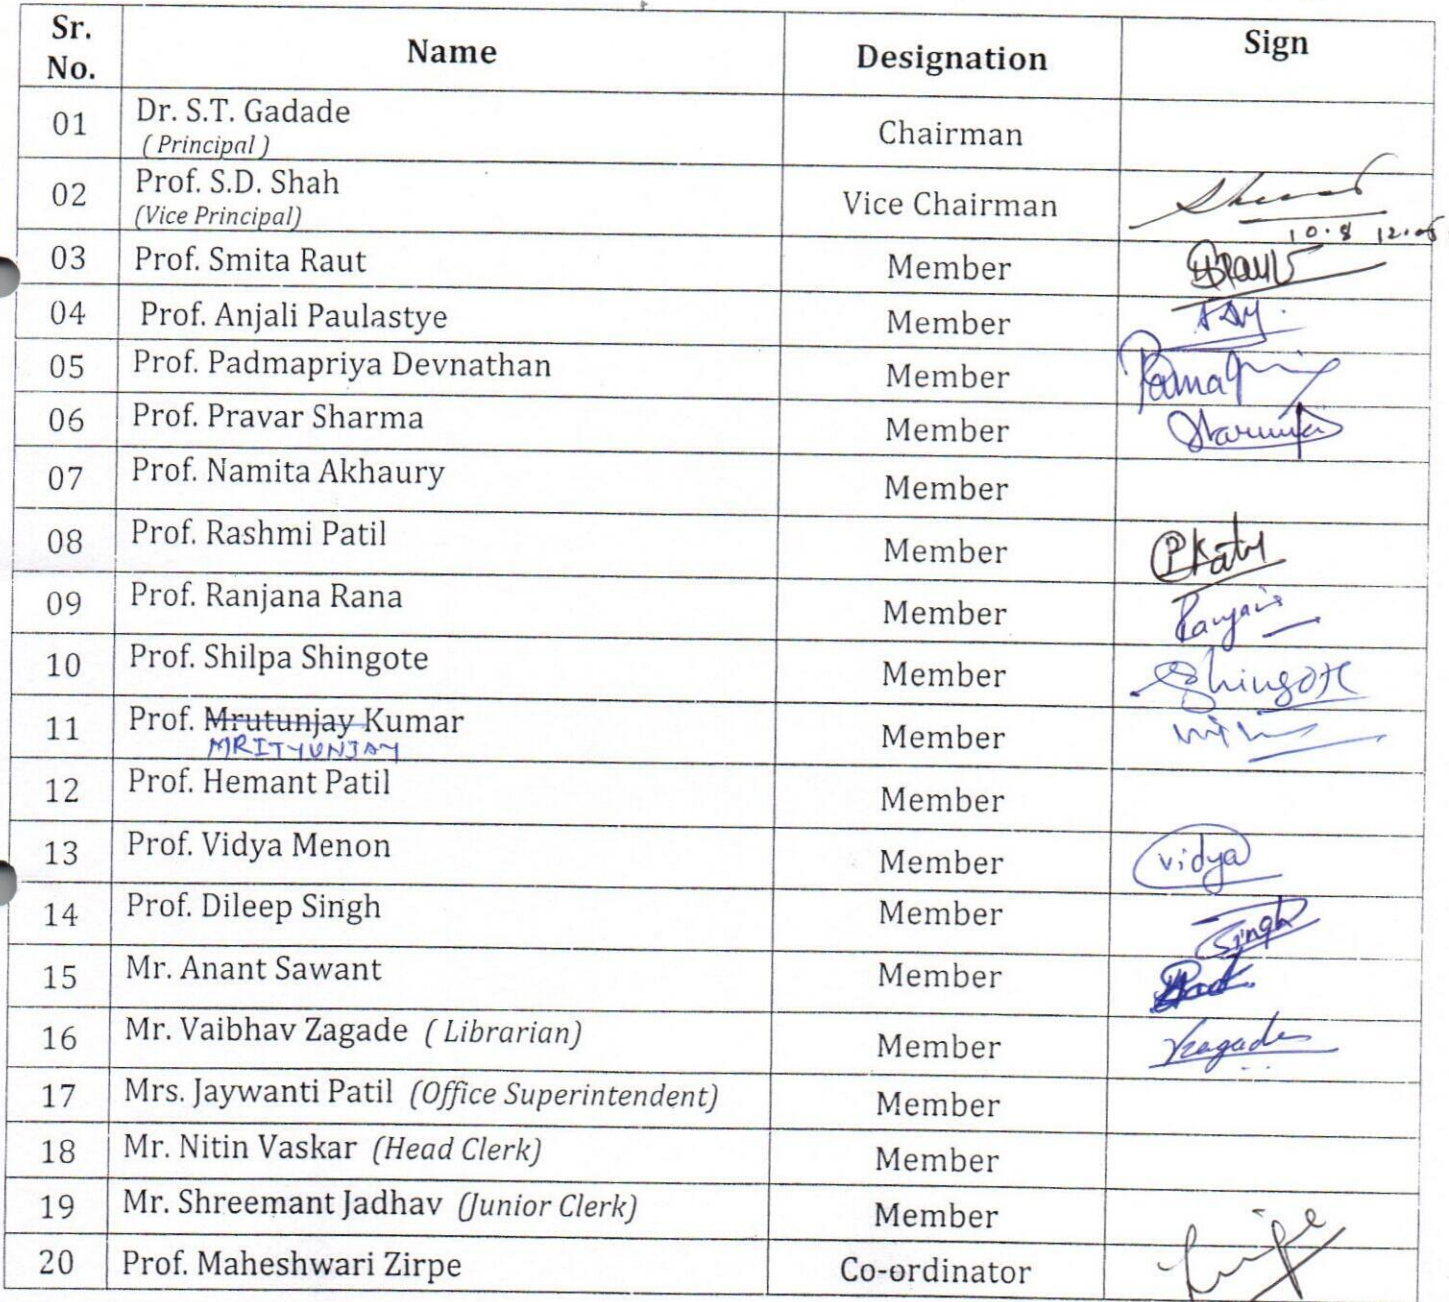 Sr. No. Name Designation Sign
01 Dr. S.T. Gadade Chairman
( Principal )
02 Prof. S.D. Shah Vice Chairman
(Vice Principal)
10.8 12.05
03 Prof. Smita Raut Member
04 Prof. Anjali Paulastye Member
05 Prof. Padmapriya Devnathan Member
06 Prof. Pravar Sharma Member
07 Prof. Namita Akhaury Member
08 Prof. Rashmi Patil Member
09 Prof. Ranjana Rana Member
10 Prof. Shilpa Shingote Member Shingote
11 Prof. Mrutunjay Kumar Member
MRITYUNJAY
12 Prof. Hemant Patil Member
13 Prof. Vidya Menon Member Vidya
14 Prof. Dileep Singh Member Singh
15 Mr. Anant Sawant Member
16 Mr. Vaibhav Zagade ( Librarian) Member
17 Mrs. Jaywanti Patil (Office Superintendent) Member
18 Mr. Nitin Vaskar (Head Clerk) Member
19 Mr. Shreemant Jadhav (Junior Clerk) Member
20 Prof. Maheshwari Zirpe Co-ordinator